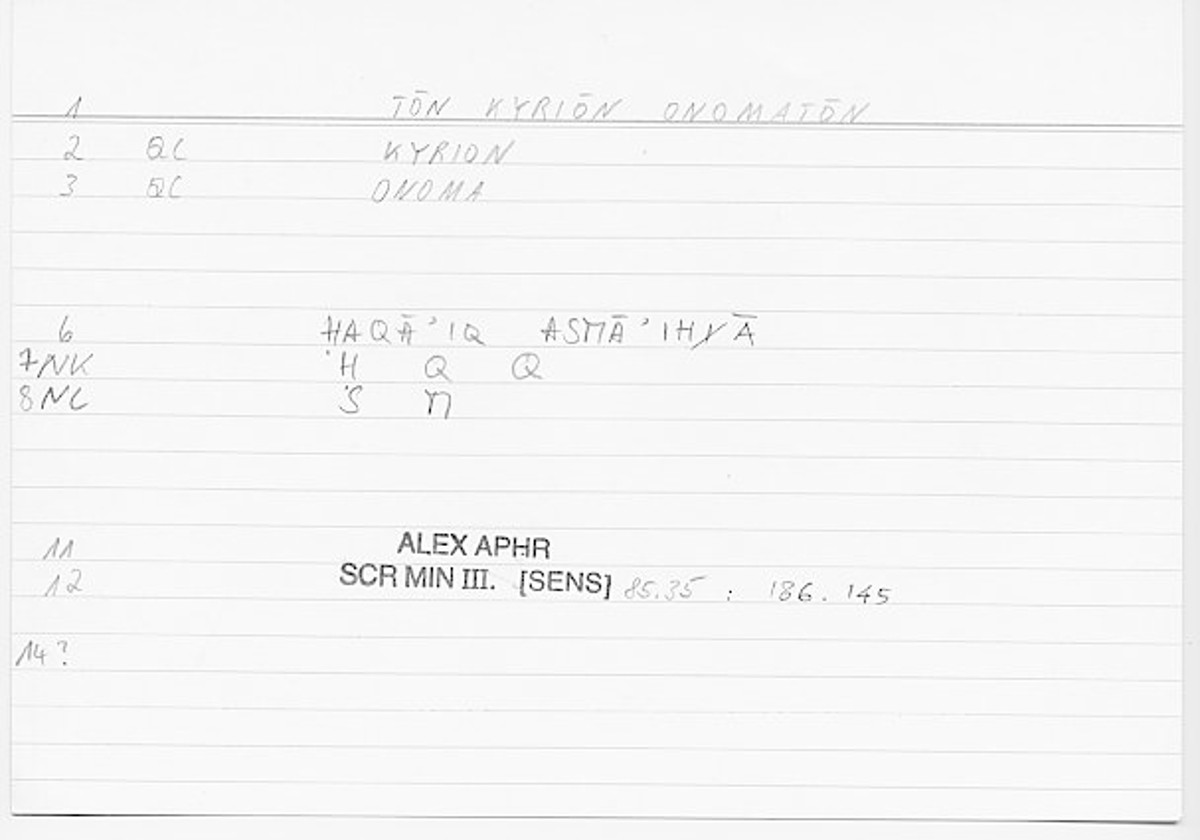 1 TŌN KYRIŌN ONOMATŌN
2 QC KYRION
3 QC ONOMA
6 HAQĀ'IQ ASMĀ'IHĀ
7NK 'H Q Q
8NC 'S M
11 ALEX APHR
12 SCR MIN III. [SENS] 85.35 : 186.145
14?